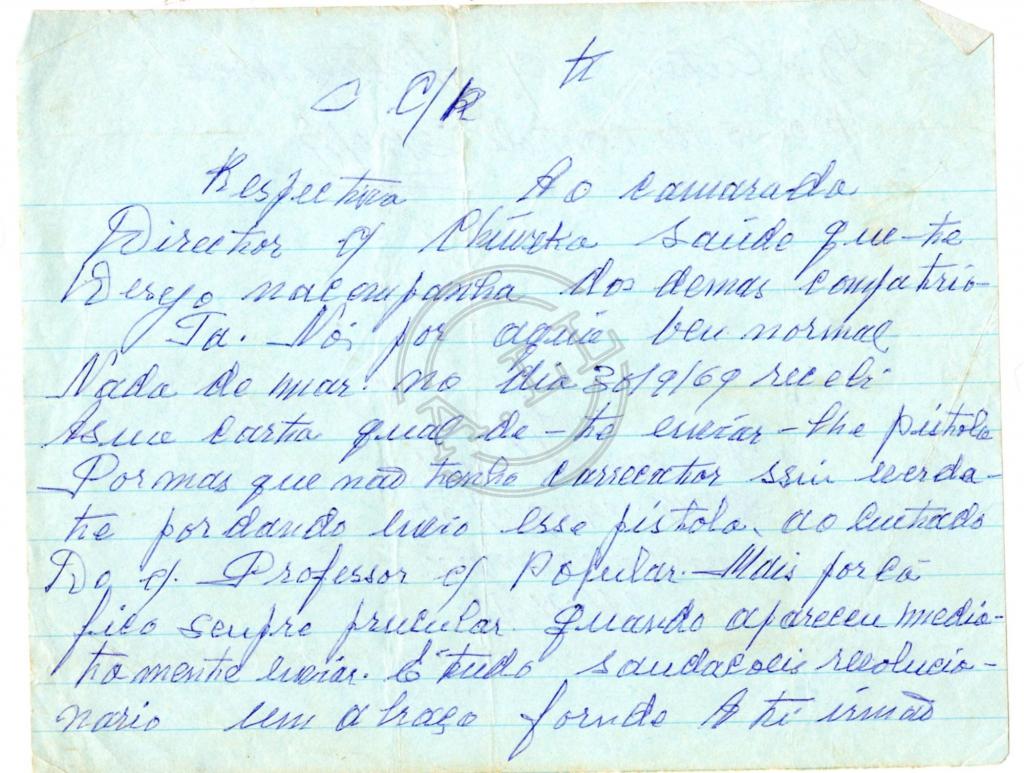 C/R
Respectiva Ao camarada
Director cj Chiweka saúde que-te
Desejo nacompanha dos demas compatrio-
Ta. Nós por aquia beu normal
Nada de mar. no dia 30/9/69 recebi
Asua carta qual de-te enviar-lhe pistola
Por mas que não tenho carrecator ssin verda-
te por dando envio esse pistola ao cunhado
Do cj. Professor cj Popular. Mais por cá
fico senpre prucular quando apareceu media-
tamente enviar. É tudo saudacoeis revolucio-
nario um abraço fornde A ti irmão